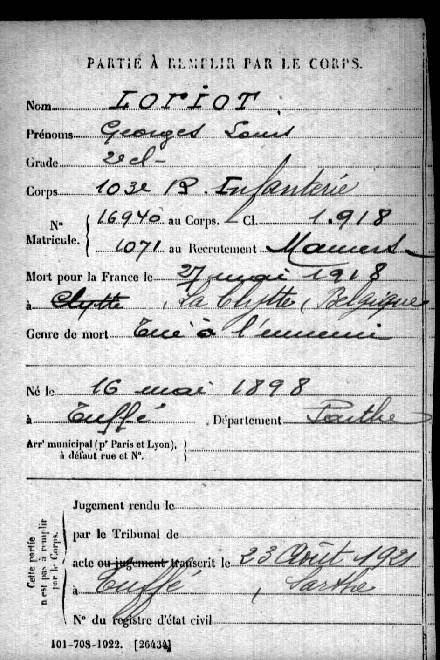 PARTIE À REMPLIR PAR LE CORPS.
Nom LORIOT
Prénoms Georges Louis
Grade 2e cl-
Corps 103e R. Infanterie
N° Matricule. 16940 au Corps. Cl. 1.918
1071 au Recrutement Mamers
Mort pour la France le 27 mai 1918
à Clytte, La Clytte, Belgique
Genre de mort Tué à l'ennemi
Né le 16 mai 1898
à Tuffé, Département Sarthe
Arrt municipal (pr Paris et Lyon), à défaut rue et N°.
Cette partie n'est pas à remplir par le Corps.
Jugement rendu le
par le Tribunal de
acte ou jugement transcrit le 23 Août 1921
à Tuffé, Sarthe
N° du registre d'état civil
101-708-1922. [26434]